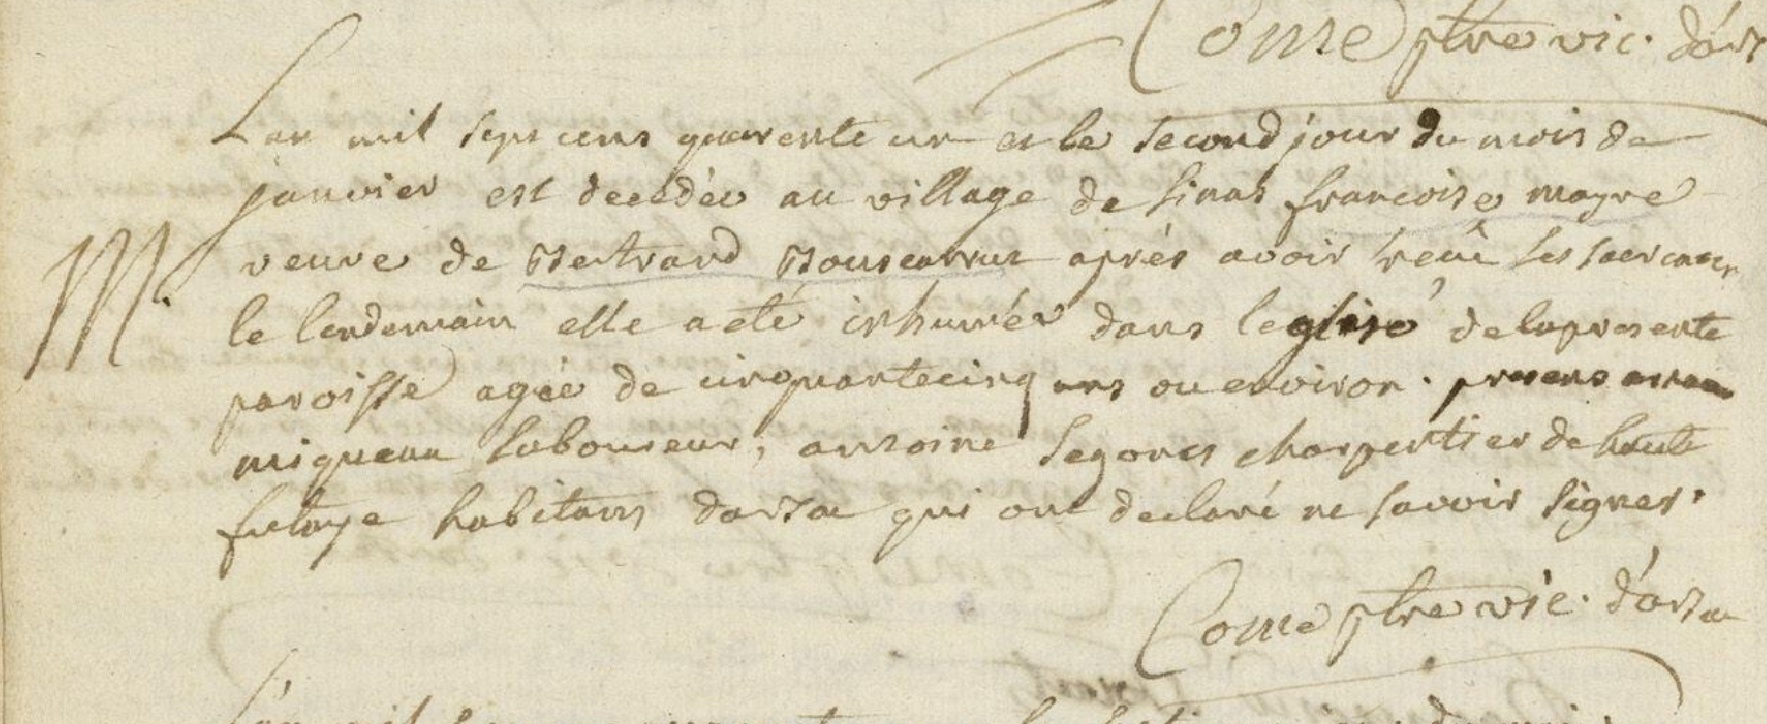 Come ptre vic. d'ars
Lan mil sept cens quarente un et le second jour du mois de
janvier est decedée au village de Linas francoise mayre
veuve de Bertrand Bouscarrut après avoir receu les sacremen
le lendemain elle a eté inhumée dans leglise de la presente
paroisse agée de cinquante cinq ans ou environ. presens
M.
miqueau laboureur, antoine Segones charpentier de haute
futaye habitans darsac qui ont declaré ne savoir signer.
Come ptre vic. d'arsac